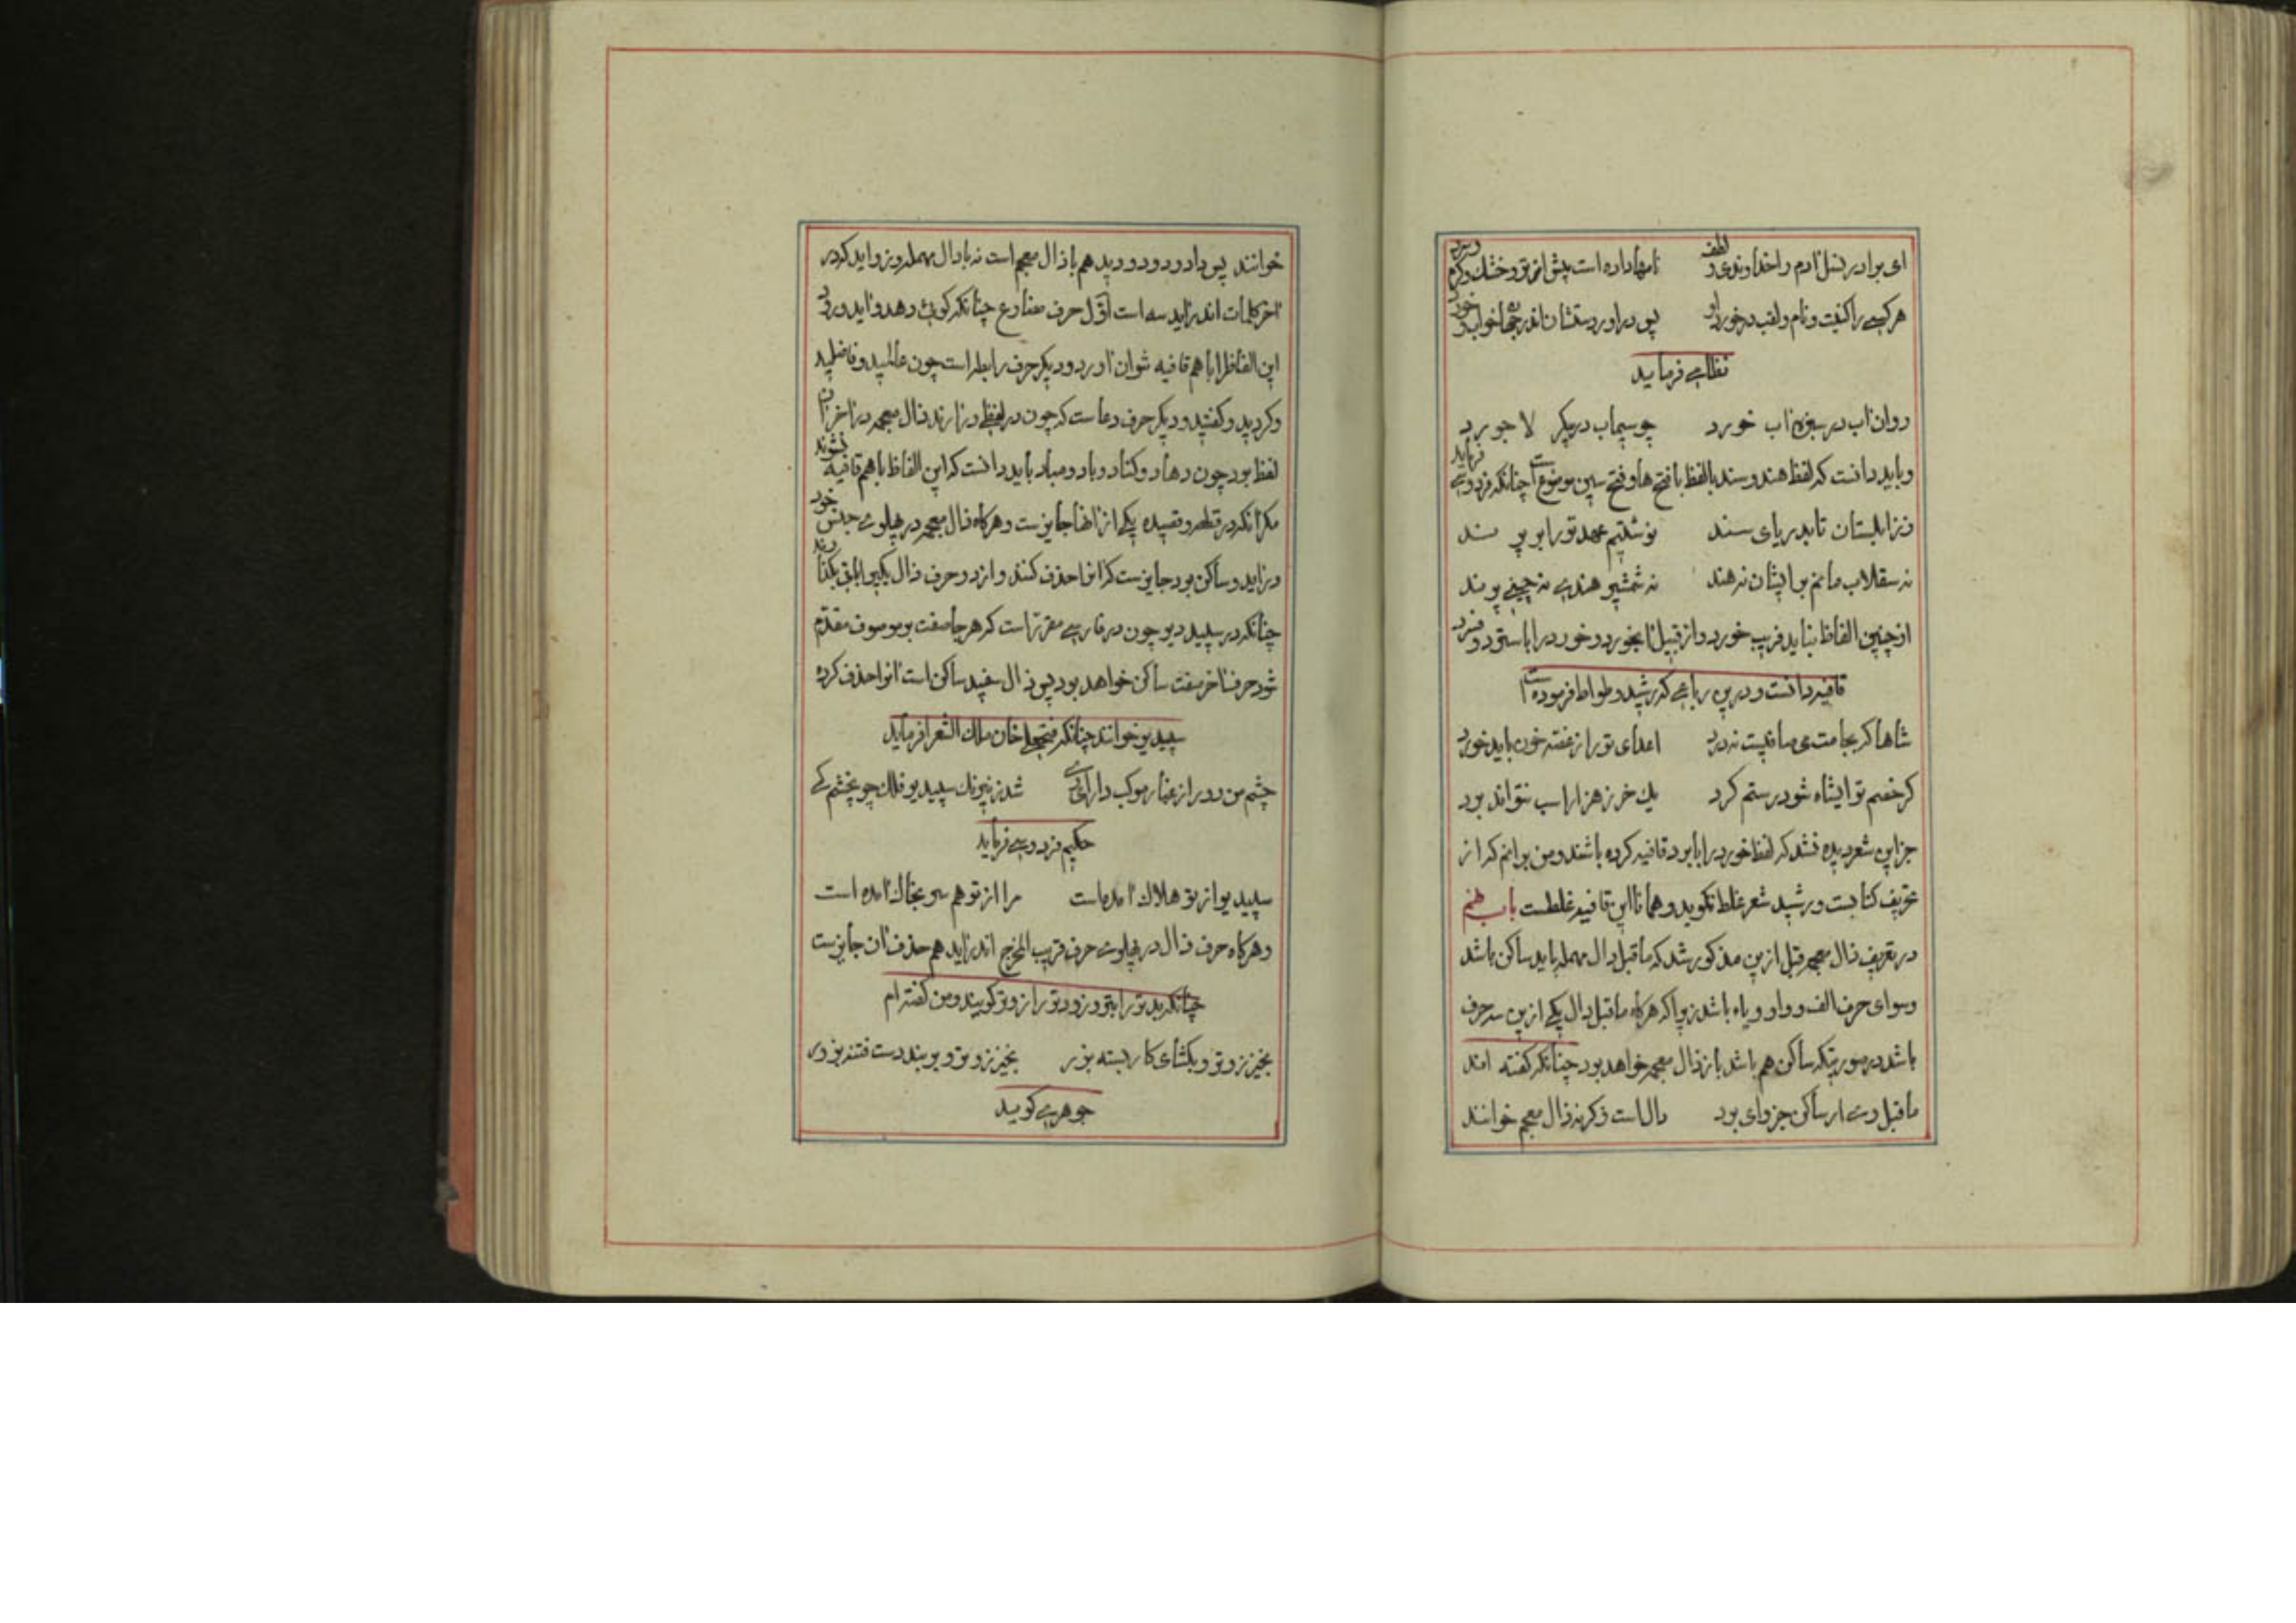 ای برادر نسل آدم را خداوندی و لطف نامها داده است پیش از تو و خشک و کرم و سرد
هر کسی را کنیت و نام و لقب در خورد او پس در آوردستشان اندر جهان خواب و خورد
نظامی فرماید
روان آب در سبزه آب خورد چو سیماب در پیکر لاجورد
و باید دانست که لفظ هند و سند با لفظ با فتح ها و فتح سین موضوع است چنانکه فردوسی فرماید
ز زابلستان تا بدریای سند نوشتیم عهد تو را بر پرند
نه سقلاب مانم بر ایشان نه هند نه شمشیر هندی نه چینی پرند
از چنین الفاظ نباید فریب خورد و از قبیل آبخورد و خورد را با ستود و
قافیه دانست و در این رباعی که رشید وطواط فرموده است
شاها که بجامت می صافیست نه درد اعدای تو را ز غصه خون باید خورد
گر خصم تو ایشاه شود رستم گرد یک خر ز هزار اسب نتواند برد
جز این شعر دیده نشد که لفظ خورد را با برد قافیه کرده باشند و من بر آنم که از
تحریف کتابست و رشید شعر غلط نگوید و همانا این قافیه غلطست باب
در تعریف ذال معجمه قبل ازین مذکور شد که ماقبل دال مهمله باید ساکن باشد
و سوای حرف الف و واو و یاء باشد زیرا که هرگاه ماقبل دال یکی ازین سه حرف
باشد در صورتیکه ساکن هم باشد باز ذال معجمه خواهد بود چنانکه گفته اند
ماقبل وی ار ساکن جز وای بود دال است وگرنه ذال معجم خوانند
خوانند پس داد و دود و دید هم با ذال معجم است نه با دال مهمله و زواید که در
آخر کلمات اندر آید سه است اول حرف مضارع چنانکه گوید و دهد و آید و رود
این الفاظ را با هم قافیه توان آورد و دیگر حرف رابطه است چون عالمید و فاضلید
و کردید و گفتید و دیگر حرف دعاست که چون در لفظی درآرند ذال معجمه در آخر آن
لفظ بود چون دهاد و کناد و باد و مباد باید دانست که این الفاظ با هم قافیه نشوند
مگر آنکه در قطعه و قصیده یکی از آنها جایزست و هرگاه ذال معجمه در پهلوی جنس خود
درآید و ساکن بود جایزست که آنرا حذف کنند و از دو حرف ذال یکی را باقی بگذارند
چنانکه در سپید دیو چون در فارسی مقرر است که هر جا صفت بر موصوف مقدم
شود حرف آخر صفت ساکن خواهد بود پس ذال سفید ساکن است آنرا حذف کرده
سپیدیو خوانند چنانکه فتحعلی خان ملک الشعرا فرماید
چشم من دور از غبار موکب دارای ری شد ز نیرنگ سپیدیو فلک چو چشم کی
حکیم فردوسی فرماید
سپیدیو از تو هلاک آمده است مرا از تو هم سر بخاک آمده است
و هرگاه حرف ذال در پهلوی حرف قریب المخرج اندر آید هم حذف آن جایزست
چنانکه بد تو را بتو و زود تو را زوتو گویند و من گفته‌ام
بخیز زوتو و بگشای کار بسته بزر بخیز زوتو و بر بند دست فتنه بزور
جوهری گوید